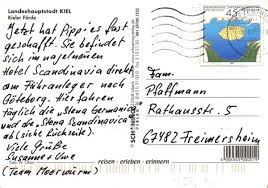 Landeshauptstadt KIEL
Kieler Förde
Jetzt hat Pippi es fast
geschafft. Sie befindet
sich im
Hotel Scandinavia direkt
am Fähranleger nach
Göteborg. Hier fahren
täglich die "Stena Germanica"
und die "Stena Scandinavica"
ab (siehe Rückseite).
Viele Grüße
Susanne + Uwe
(Team Meerwurm)
Fam.
Pfaffmann
Rathausstr. 5
67482 Freimersheim
reisen · erleben · erinnern